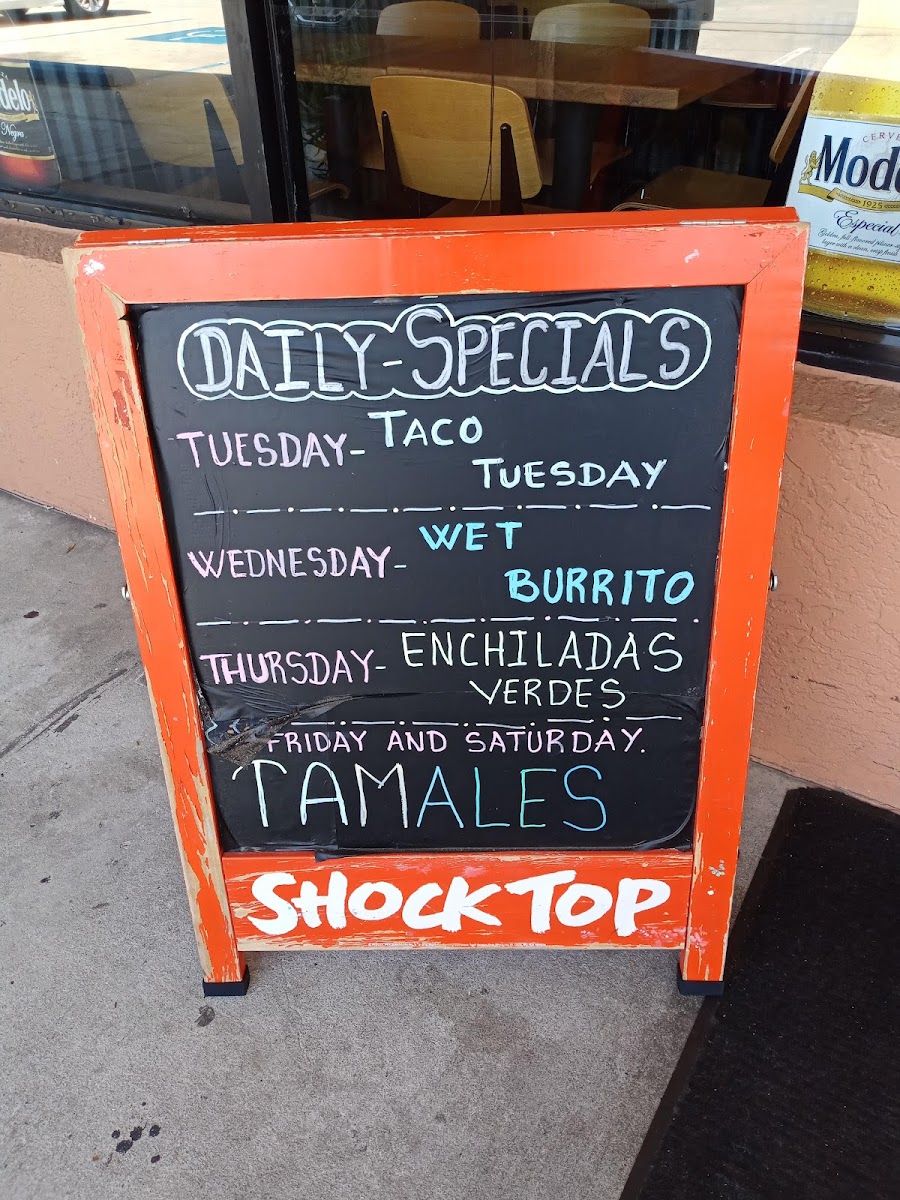 delo
Negra
CERVE
Mode
1925
Especial
DAILY-SPECIALS
TUESDAY- TACO
TUESDAY
WEDNESDAY- WET
BURRITO
THURSDAY- ENCHILADAS
VERDES
FRIDAY AND SATURDAY.
TAMALES
SHOCK TOP